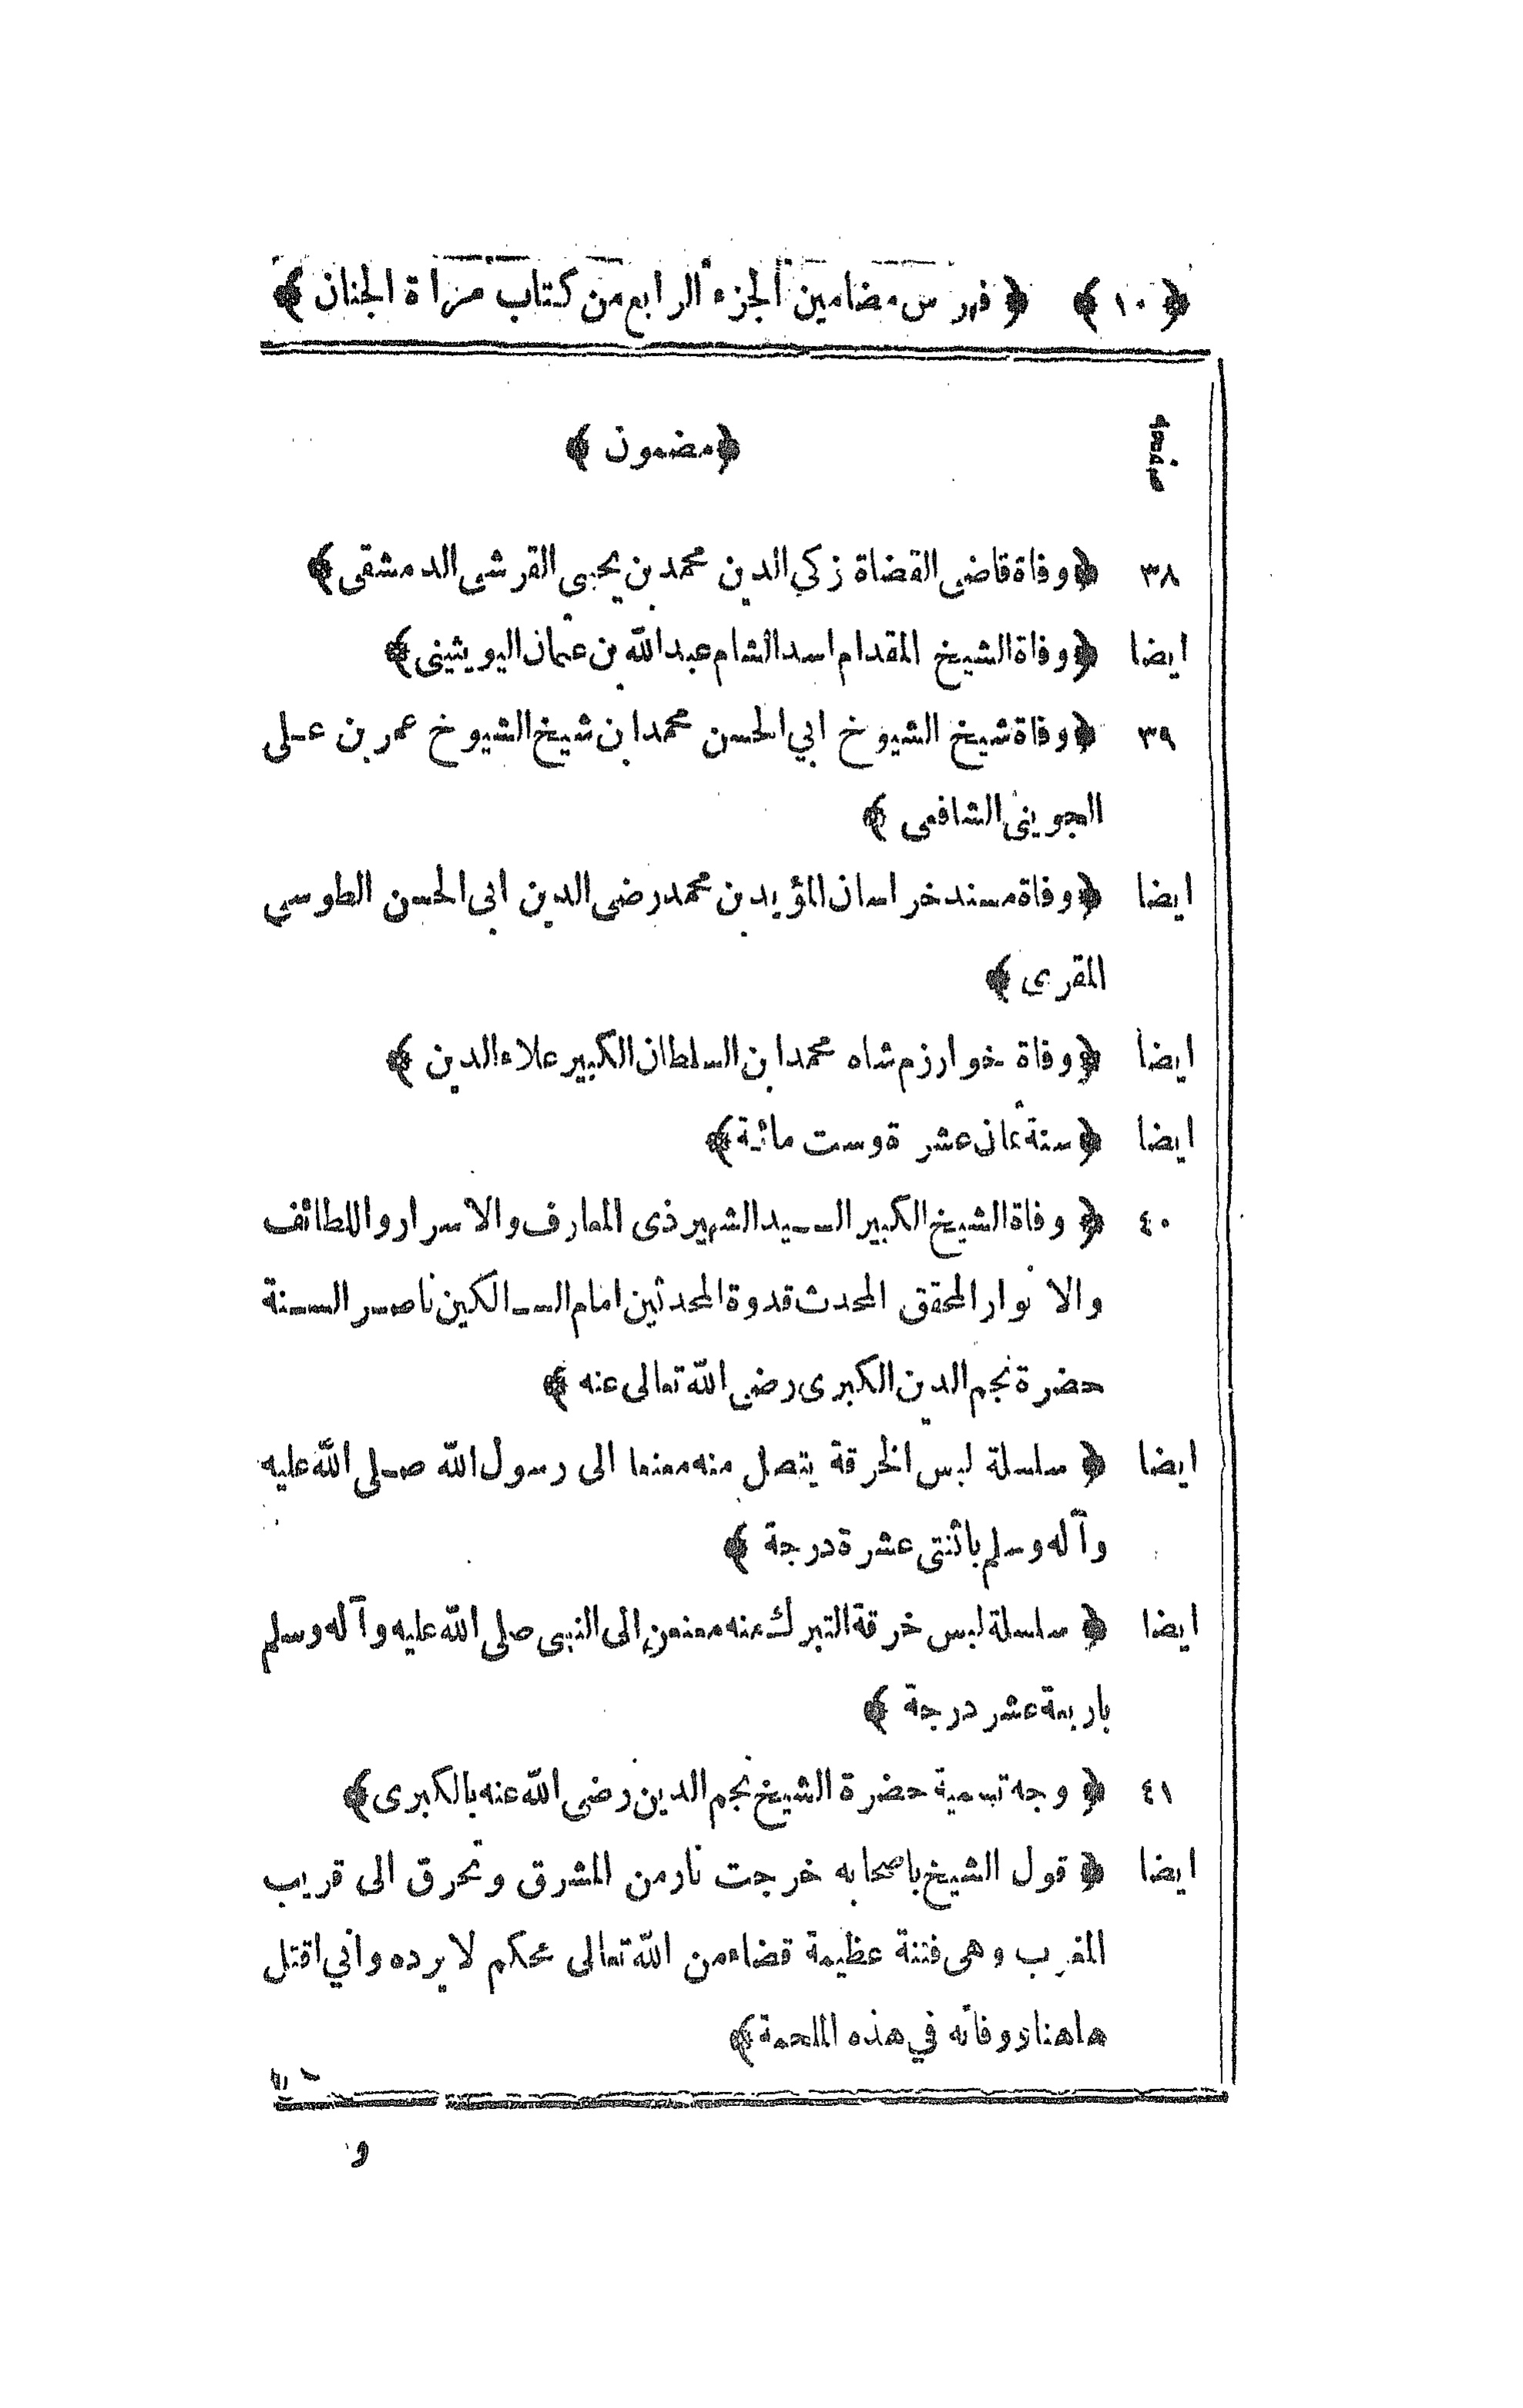 ﴿ ١٠ ﴾ ﴿ فهرس مضامين الجزء الرابع من كتاب مرأة الجنان ﴾
صفحه ﴿ مضمون ﴾
٣٨ ﴿ وفاة قاضى القضاة زكي الدين محمد بن يحيى القرشى الدمشقى ﴾
ايضا ﴿ وفاة الشيخ المقدام اسد الشام عبد الله بن عثمان اليويثينى ﴾
٣٩ ﴿ وفاة شيخ الشيوخ ابي الحسن محمد ابن شيخ الشيوخ عمر بن على
الجوينى الشافعى ﴾
ايضا ﴿ وفاة مسند خراسان المؤيد بن محمد رضى الدين ابى الحسن الطوسي
المقرى ﴾
ايضا ﴿ وفاة خوارزم شاه محمد ابن السلطان الكبير علاء الدين ﴾
ايضا ﴿ سنة ثمان عشرة وست مائة ﴾
٤٠ ﴿ وفاة الشيخ الكبير السيد الشهير ذى المعارف والاسرار واللطائف
والانوار المحقق المحدث قدوة المحدثين امام السالكين ناصر السنة
حضرة نجم الدين الكبرى رضى الله تعالى عنه ﴾
ايضا ﴿ سلسلة لبس الخرقة يتصل منه معنعنا الى رسول الله صلى الله عليه
وآله وسلم باثنتى عشرة درجة ﴾
ايضا ﴿ سلسلة لبس خرقة التبرك منه معنعن الى النبى صلى الله عليه وآله وسلم
باربعة عشر درجة ﴾
٤١ ﴿ وجه تسمية حضرة الشيخ نجم الدين رضى الله عنه بالكبرى ﴾
ايضا ﴿ قول الشيخ باصحابه خرجت نار من المشرق وتحرق الى قريب
المغرب وهى فتنة عظيمة قضاء من الله تعالى محكم لا يرده واني اقتل
هاهنا ووفاته في هذه الملحمة ﴾
و